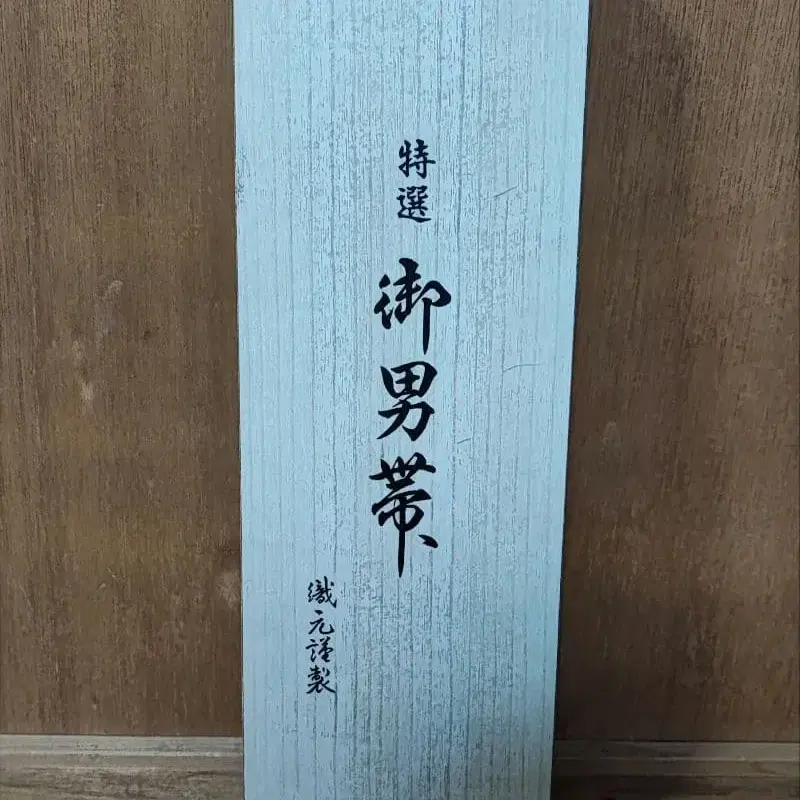 特選 御男帯
織元謹製